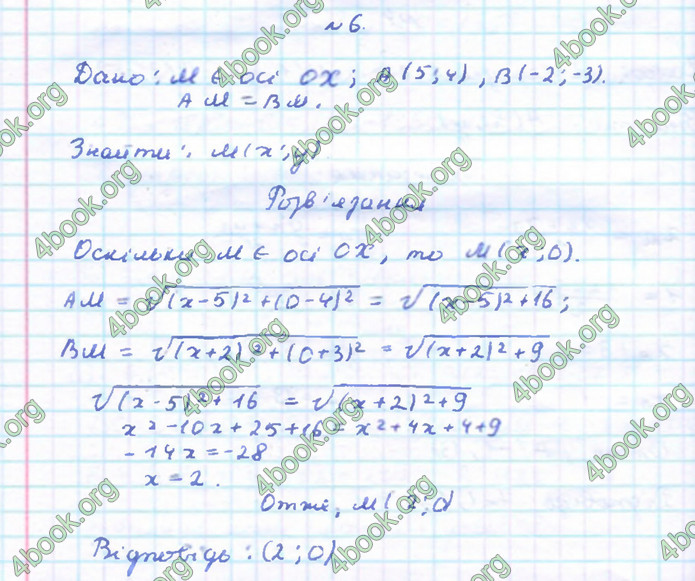 № 6.
Дано: М ∈ осі ОХ; А(5;4), В(-2;-3).
АМ = ВМ.
Знайти: М(х;у)
Розв'язання
Оскільки М ∈ осі ОХ, то М(х;0).
АМ = √(х-5)²+(0-4)² = √(х-5)²+16;
ВМ = √(х+2)²+(0+3)² = √(х+2)²+9
√(х-5)²+16 = √(х+2)²+9
х²-10х+25+16=х²+4х+4+9
-14х=-28
х=2.
Отже, М(2;0)
Відповідь: (2;0)
4book.org